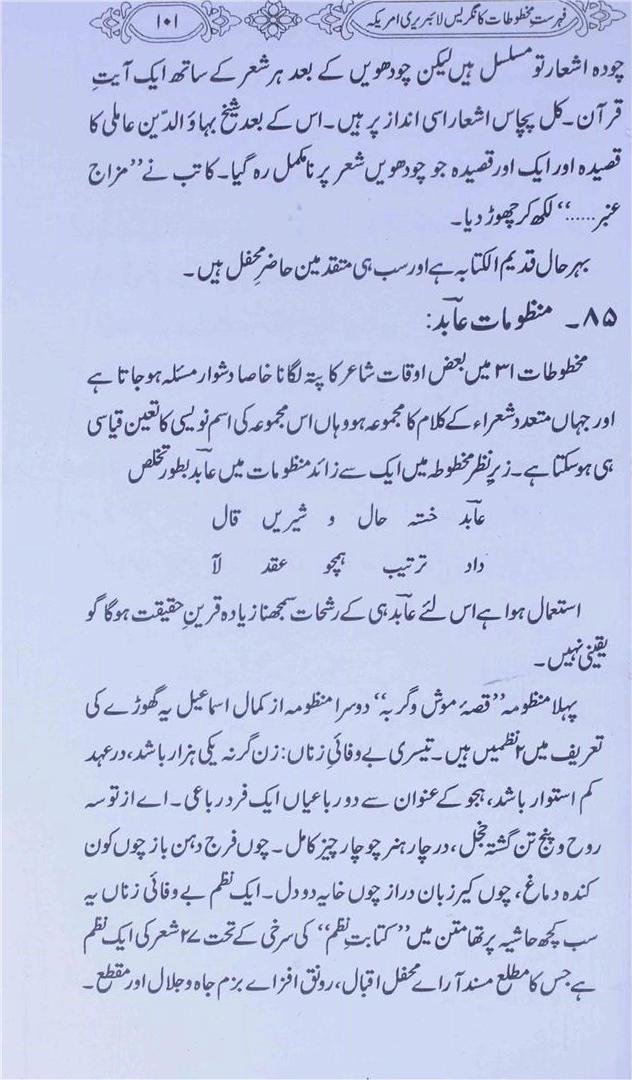 فہرستِ مخطوطات کانگریس لائبریری امریکہ ۱۰۱
چودہ اشعار تو مسلسل ہیں لیکن چودھویں کے بعد ہر شعر کے ساتھ ایک آیتِ
قرآن۔ کل پچاس اشعار اسی انداز پر ہیں۔ اس کے بعد شیخ بہاؤ الدّین عاملی کا
قصیدہ اور ایک اور قصیدہ جو چودھویں شعر پر نامکمل رہ گیا۔ کاتب نے ’’مزاج
عنبر......‘‘ لکھ کر چھوڑ دیا۔
بہر حال قدیم الکتابہ ہے اور سب ہی متقدمین حاضرِ محفل ہیں۔
۸۵۔ منظومات عابدؔ:
مخطوطات ۳۱ میں بعض اوقات شاعر کا پتہ لگانا خاصا دشوار مسئلہ ہو جاتا ہے
اور جہاں متعدد شعراء کے کلام کا مجموعہ ہو وہاں اس مجموعہ کی اسم نویسی کا تعین قیاسی
ہی ہو سکتا ہے۔ زیرِ نظر مخطوطہ میں ایک سے زائد منظومات میں عابدؔ بطور تخلص
عابدؔ خستہ حال و شیریں قال
داد ترتیب ہمچو عقد لآ
استعمال ہوا ہے اس لئے عابدؔ ہی کے رشحات سمجھنا زیادہ قرینِ حقیقت ہوگا گو
یقینی نہیں۔
پہلا منظومہ ’’قصۂ موش و گربہ‘‘ دوسرا منظومہ از کمال اسماعیل یہ گھوڑے کی
تعریف میں ۲ نظمیں ہیں۔ تیسری بے وفائیِ زناں: زن گر نہ یکی ہزار باشد، در عہد
کم استوار باشد، ہجو کے عنوان سے دو رباعیاں ایک فرد رباعی۔ اے از تو سہ
روح و پنج تن گشتہ خجل، در چار ہنر چو چار چیز کامل۔ چوں فرج دہن باز چوں کون
کندہ دماغ، چوں کیر زبان دراز چوں خایہ دو دل۔ ایک نظم بے وفائی زناں یہ
سب کچھ حاشیہ پر تھا متن میں ’’کتابتِ نظم‘‘ کی سرخی کے تحت ۲۷ شعر کی ایک نظم
ہے جس کا مطلع مسند آراے محفل اقبال، رونق افزاے بزم جاہ و جلال اور مقطع۔